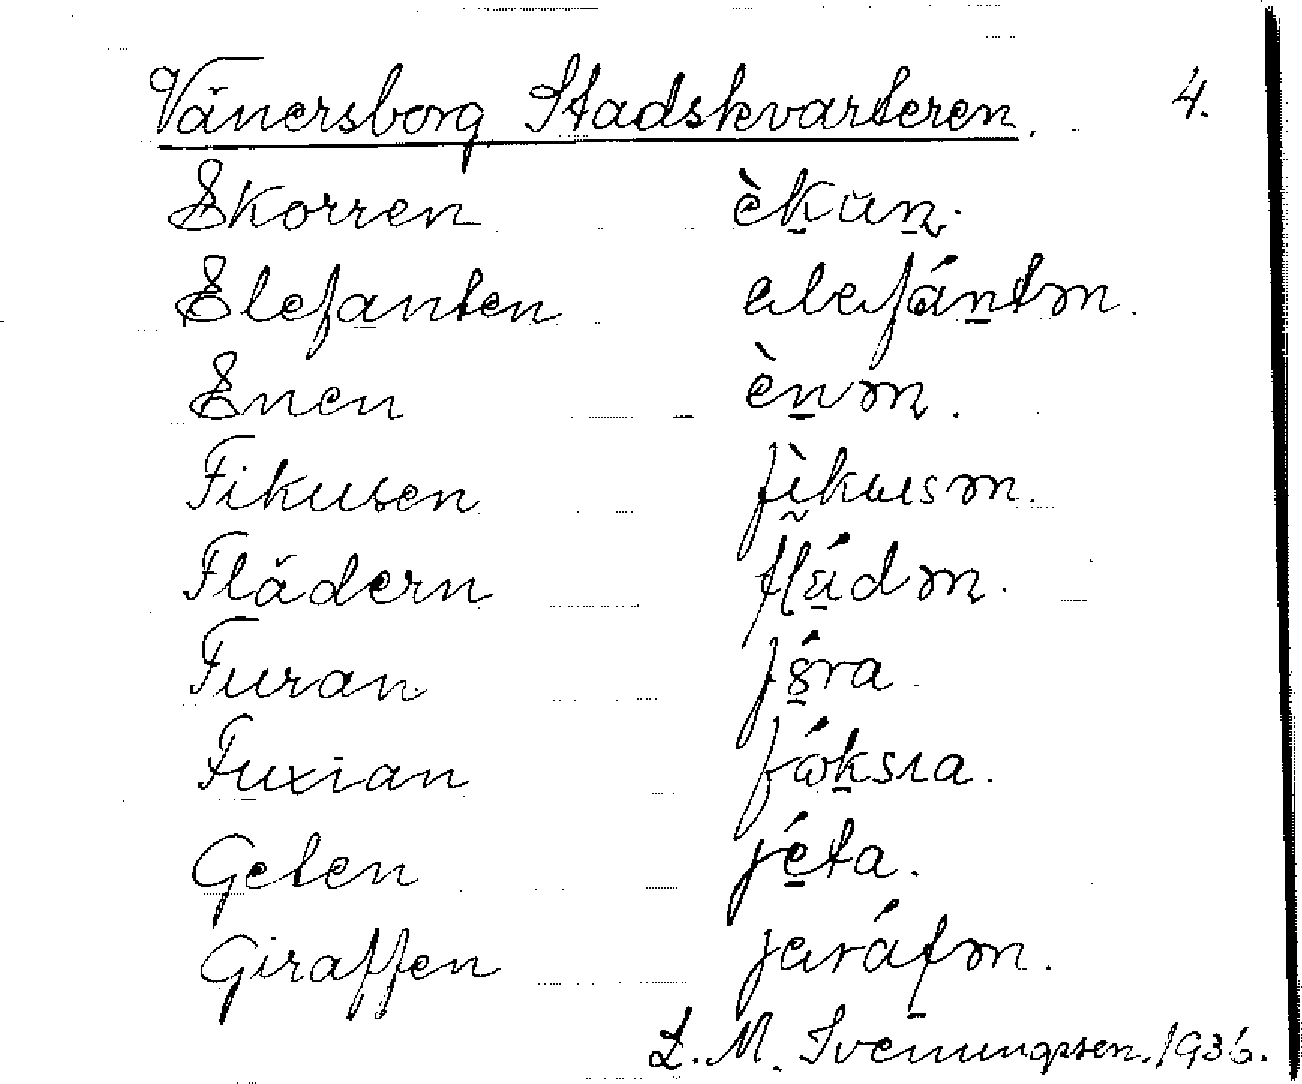 Vänersborg Stadskvarteren. 4.
Ekorren èkun.
Elefanten elefántən.
Enen ènən.
Fikusen fìkusən.
Flädern
Furan
Fuxian
Geten jéta.
Giraffen jeráfən.
L. M. Svenungsen. 1936.